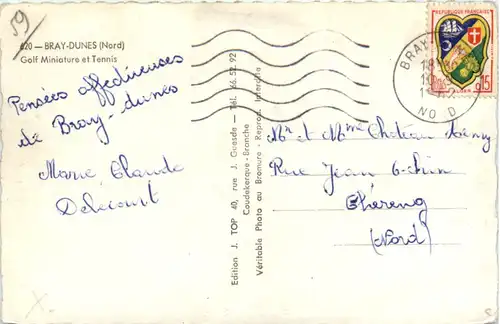 59
620 — BRAY-DUNES (Nord)
Golf Miniature et Tennis
Pensées affectueuses
de Bray-dunes
Marie Claude
Delcourt
Edition J. TOP 40, rue J. Guesde — Tél. 66.52.92
Coudekerque-Branche
Véritable Photo au Bromure - Reprod. Interdite
REPUBLIQUE FRANÇAISE
0,15
ALGER
BRAY
NORD
Mr et Mme Chateau
Rue Jean
Chéreng
(Nord)